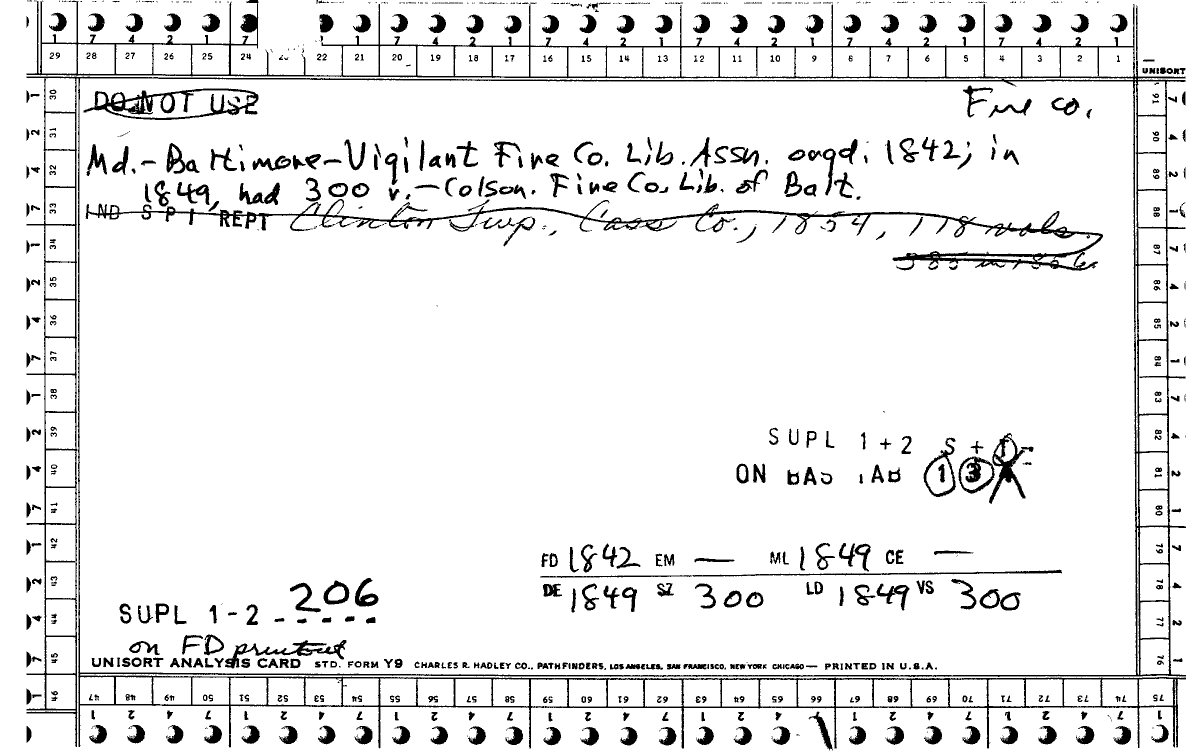 1 7 4 2 1 7 7 4 2 1 7 4 2 1 7 4 2 1 7 4 2 1 7 4 2 1
29 28 27 26 25 24 22 21 20 19 18 17 16 15 14 13 12 11 10 9 8 7 6 5 4 3 2 1
UNISORT
DO NOT USE
Fire co.
Md.-Baltimore-Vigilant Fire Co. Lib. Assn. orgd. 1842; in
1849, had 300 v.-Colson. Fire Co. Lib. of Balt.
IND SPI REPT Clinton Twp., Cass Co., 1854, 118 vols.
385 in 1856.
SUPL 1+2 S + F
ON BAS TAB 1 3
FD 1842 EM — ML 1849 CE —
DE 1849 SZ 300 LD 1849 VS 300
SUPL 1-2 206
on FD printout
UNISORT ANALYSIS CARD STD. FORM Y9 CHARLES R. HADLEY CO., PATHFINDERS, LOS ANGELES, SAN FRANCISCO, NEW YORK CHICAGO— PRINTED IN U.S.A.
30 31 32 33 34 35 36 37 38 39 40 41 42 43 44 45 46
91 90 89 88 87 86 85 84 83 82 81 80 79 78 77 76 75
47 48 49 50 51 52 53 54 55 56 57 58 59 60 61 62 63 64 65 66 67 68 69 70 71 72 73 74